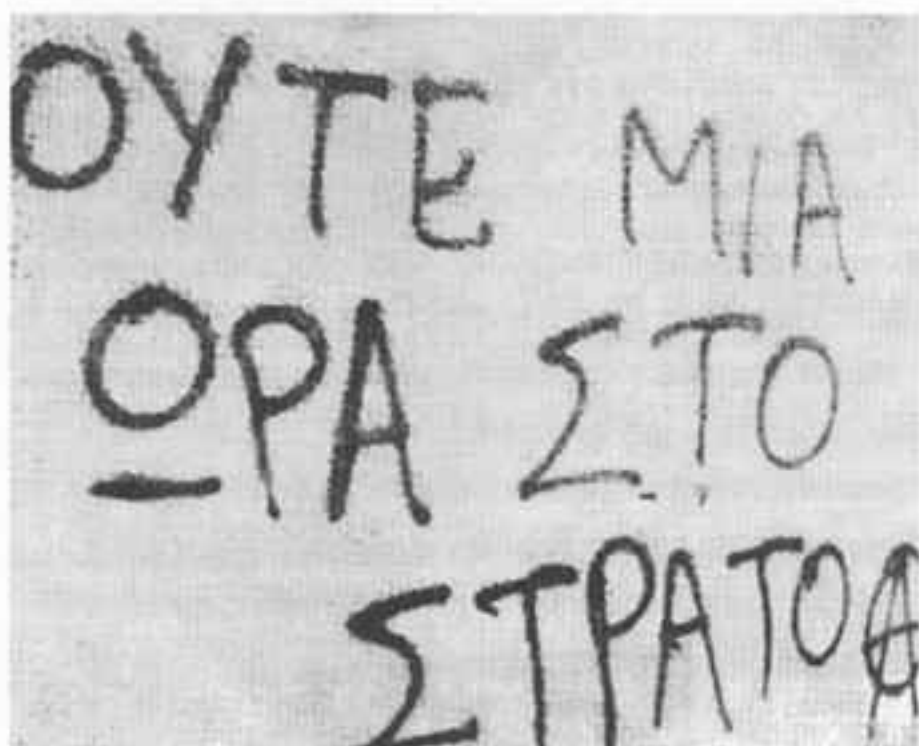 ΟΥΤΕ ΜΙΑ
ΩΡΑ ΣΤΟ
ΣΤΡΑΤΟ Ⓐ